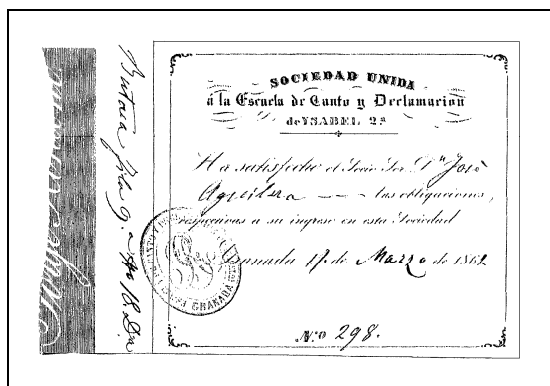 SOCIEDAD UNIDA
á la Escuela de Canto y Declamacion
de YSABEL 2ª
Ha satisfecho el Socio Sor. Dn José
Aguilera — — las obligaciones,
respectivas a su ingreso en esta Sociedad
Granada 17 de Marzo de 1862
GRANADA
Nº 298.
Butaca fila 9. a No 18 Da